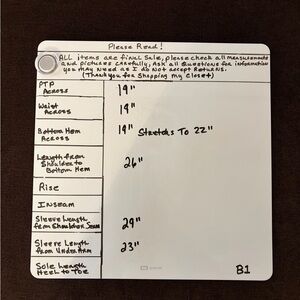 Please Read!
ALL items are final sale, please check all measurements
and pictures carefully, Ask all Questions for information
you may need as I do not accept returns.
(Thank you for shopping my closet)
PTP Across 19"
Waist Across 19"
Bottom Hem Across 19" Stretchs To 22"
Length from Shoulder to Bottom Hem 26"
Rise
Inseam
Sleeve Length from Shoulder Seam 29"
Sleeve Length from Under Arm 23"
Sole Length Heel to Toe
B1